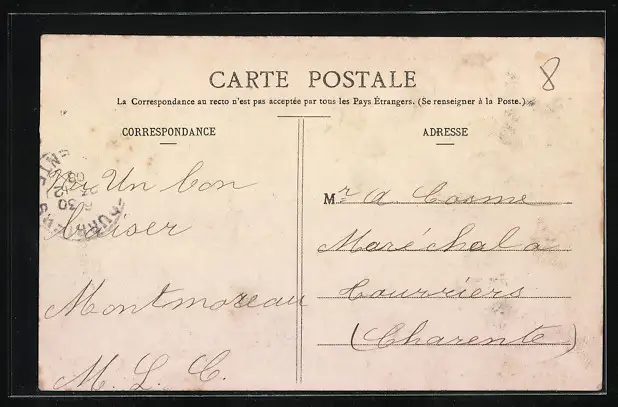 8
CARTE POSTALE
La Correspondance au recto n'est pas acceptée par tous les Pays Étrangers. (Se renseigner à la Poste.)
CORRESPONDANCE
ADRESSE
Un bon
baiser
Montmoreau
M. L. C.
Mr A. Cosme
Maréchal a
Courriers
(Charente)